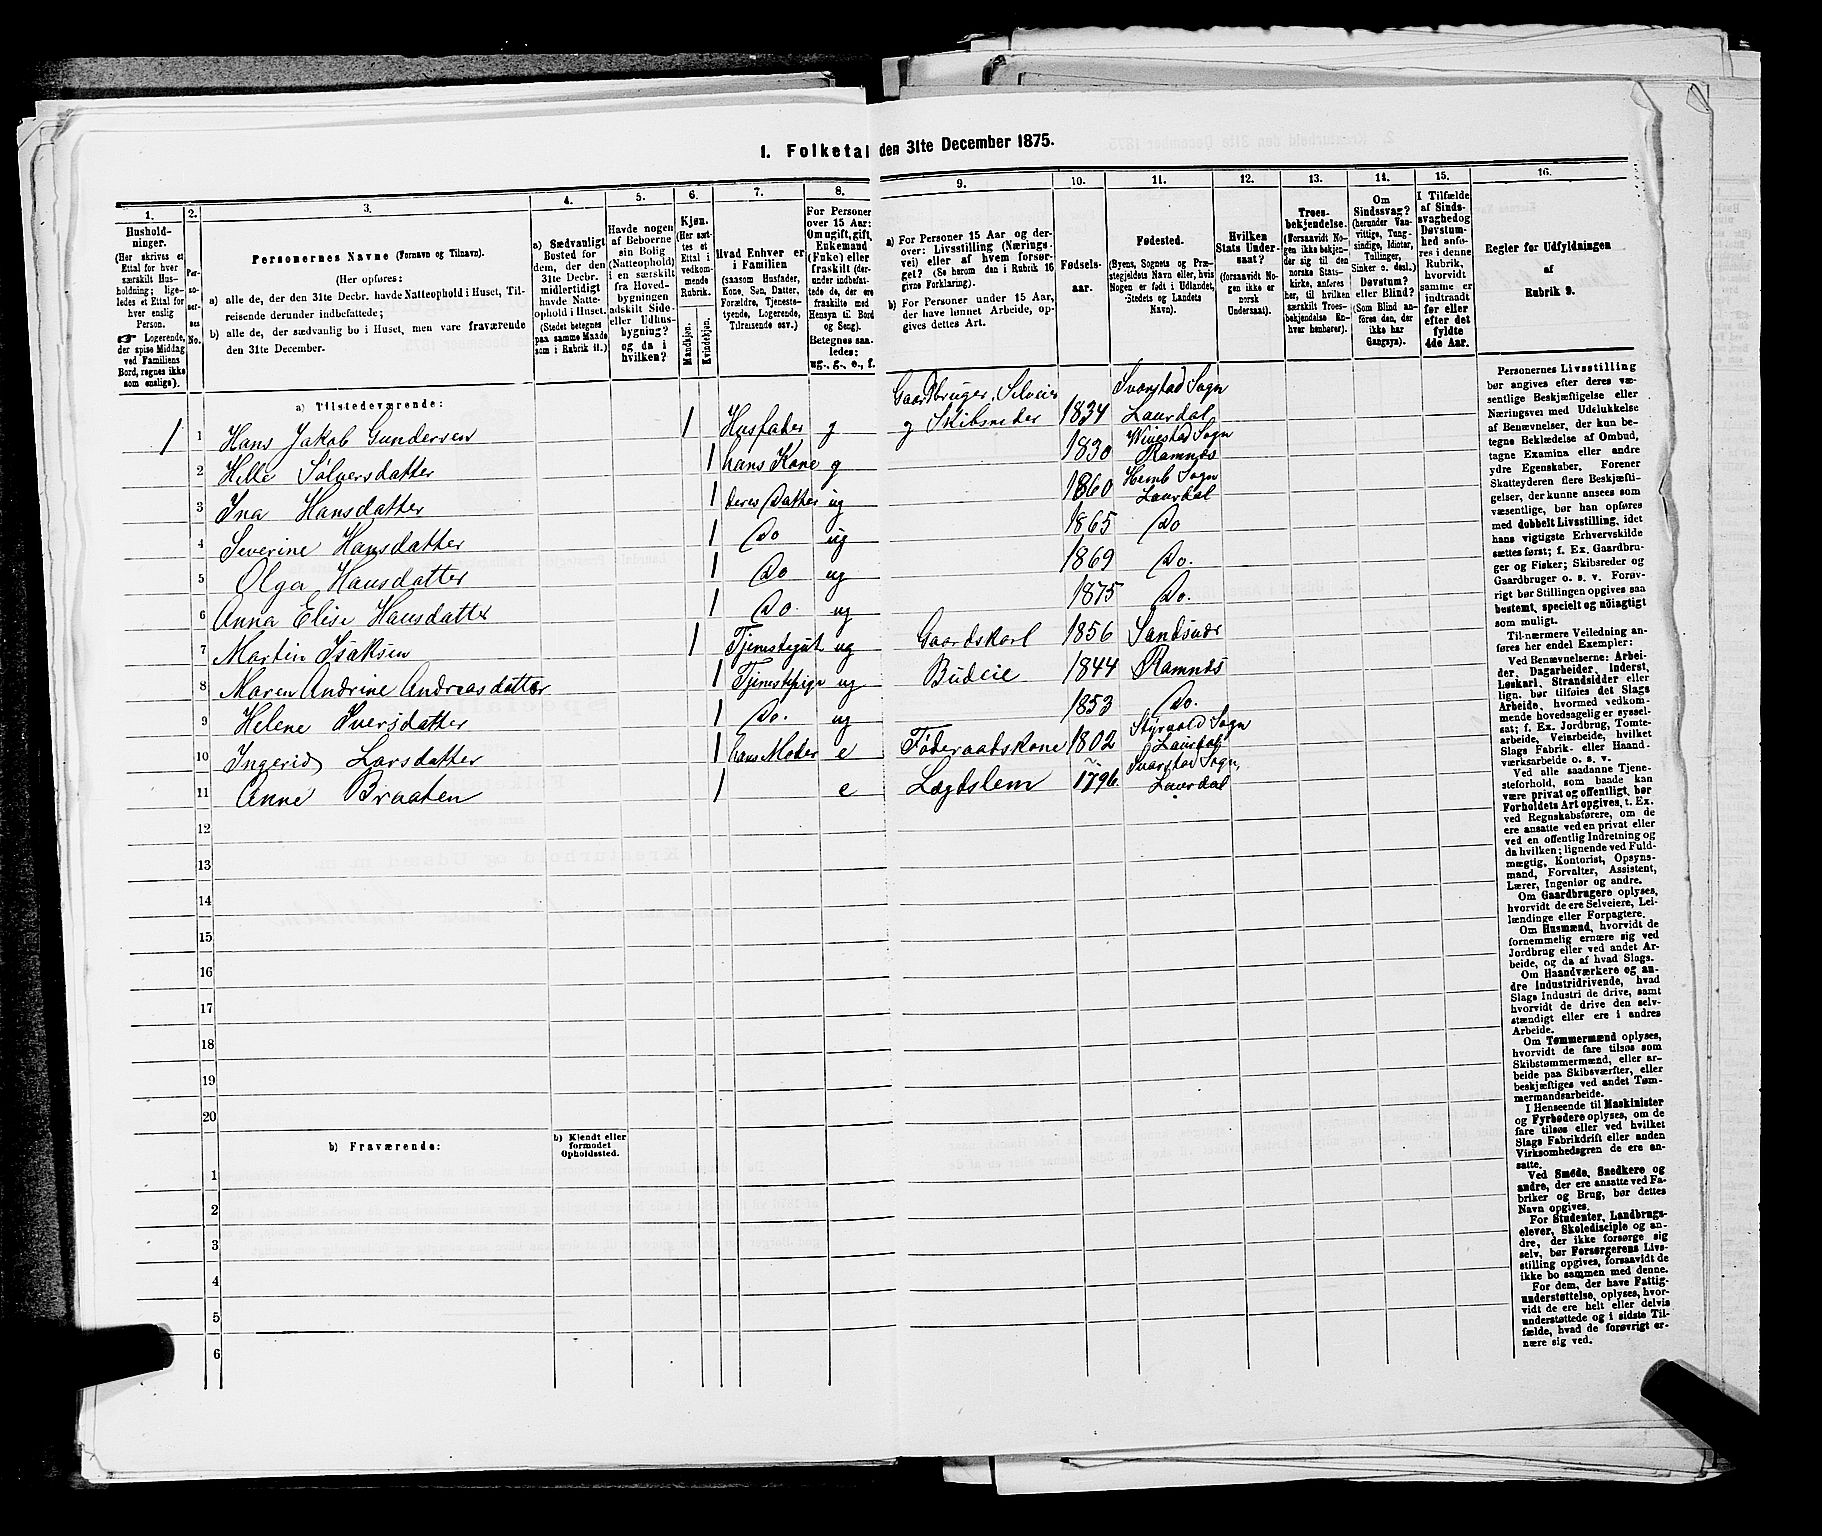 1. Folketal den 31te December 1875.
1. 2. 3. 4. 5. 6. 7. 8. 9. 10. 11. 12. 13. 14. 15. 16.
Hushold-
ninger.
(Her skrives et
Ettal for hver
særskilt Hus-
holdning; lige-
ledes et Ettal for
hver enslig
Person.
☞ Logerende,
der spise Middag
ved Familiens
Bord, regnes ikke
som enslige).
Per-
so-
ner-
nes
No.
Personernes Navne (Fornavn og Tilnavn).
(Her opføres:
a) alle de, der den 31te Decbr. havde Natteophold i Huset, Til-
reisende derunder indbefattede;
b) alle de, der sædvanlig bo i Huset, men vare fraværende
den 31te December.
a) Sædvanligt
Bosted for
dem, der den
31te Decbr.
midlertidigt
havde Natte-
ophold i Huset.
(Stedet betegnes
paa samme Maade
som i Rubrik 11.)
Havde nogen
af Beboerne
sin Bolig
(Natteophold)
i en særskilt
fra Hoved-
bygningen
adskilt Side-
eller Udhus-
bygning?
og da i
hvilken?
Kjøn.
(Her sæt-
tes et
Ettal i
vedkom-
mende
Rubrik.
Mandskjøn.
Kvindekjøn.
Hvad Enhver er
i Familien
(saasom Husfader,
Kone, Søn, Datter,
Forældre, Tjeneste-
tyende, Logerende,
Tilreisende osv.)
For Personer
over 15 Aar:
Om ugift, gift,
Enkemand
(Enke) eller
fraskilt (der-
under indbefat-
tede de, der ere
fraskilte med
Hensyn til Bord
og Seng).
Betegnes saa-
ledes:
ug., g., e., f.
a) For Personer 15 Aar og der-
over: Livsstilling (Nærings-
vei) eller af hvem forsør-
get? (Se herom den i Rubrik 16
givne Forklaring).
b) For Personer under 15 Aar,
der have lønnet Arbeide, op-
gives dettes Art.
Fødsels-
aar.
Fødested.
(Byens, Sognets og Præ-
stegjeldets Navn eller, hvis
Nogen er født i Udlandet,
Stedets og Landets
Navn).
Hvilken
Stats Under-
saat?
(forsaavidt No-
gen ikke er
norsk
Undersaat).
Troes-
bekjendelse.
(Forsaavidt No-
gen ikke bekjen-
der sig til den
norske Stats-
kirke, anføres
her, til hvilken
særskilt Troes-
bekjendelse En-
hver henhører).
Om
Sindssvag?
(herunder Van-
vittige, Tung-
sindige, Idioter,
Tullinger,
Sinker o. desl.)
Døvstum?
eller Blind?
(Som Blind an-
føres den, der
ikke har
Gangsyn).
I Tilfælde
af Sinds-
svaghed og
Døvstum-
hed anfø-
res i denne
Rubrik,
hvorvidt
samme er
indtraadt
før eller
efter det
fyldte
4de Aar.
Regler for Udfyldningen
af
Rubrik 9.
a) Tilstedeværende:
1 1 Hans Jakob Gundersen 1 Husfader g Gaardbruger, Selveier og Skibsreder 1834 Svarstad Sogn Laurdal
2 Helle Sølversdatter 1 hans Kone g 1830 Vivestad Sogn Ramnæs
3 Ina Hansdatter 1 deres Datter ug 1860 Hemb Sogn Laurdal
4 Severine Hansdatter 1 Do ug 1865 Do
5 Olga Hansdatter 1 Do ug 1869 Do.
6 Anna Elise Hansdatter 1 Do. ug 1875 Do.
7 Martin Isaksen 1 Tjenestegut ug Gaardskarl 1856 Sandsvær
8 Maren Andrine Andreasdatter 1 Tjenestepige ug Budeie 1844 Ramnæs
9 Helene Iversdatter 1 Do. ug 1853 Do.
10 Ingerid Larsdatter 1 hans Moder e Føderaadskone 1802 Styrvold Sogn Laurdal
11 Anne Braaten 1 e Lægdslem 1796 Svarstad Sogn, Laurdal
12
13
14
15
16
17
18
19
20
b) Fraværende:
b) Kjendt eller
formodet
Opholdssted.
1
2
3
4
5
6
Personernes Livsstilling
bør angives efter deres væ-
sentlige Beskjæftigelse eller
Næringsvei med Udelukkelse
af Benævnelser, der kun be-
tegne Beklædelse af Ombud,
tagne Examina eller andre
ydre Egenskaber. Forener
Skatteyderen flere Beskjæfti-
gelser, der kunne ansees som
væsentlige, bør han opføres
med dobbelt Livsstilling, idet
hans vigtigste Erhvervskilde
sættes først; f. Ex. Gaardbru-
ger og Fisker; Skibsreder og
Gaardbruger o. s. v. Forøv-
rigt bør Stillingen opgives saa
bestemt, specielt og nøiagtigt
som muligt.
Til nærmere Veiledning an-
føres her endel Exempler:
Ved Benævnelserne: Arbei-
der, Dagarbeider, Inderst,
Løskarl, Strandsidder eller
lign. bør tilføies det Slags
Arbeide, hvormed vedkom-
mende hovedsagelig er syssel-
sat; f. Ex. Jordbrug, Tomte-
arbeide, Veiarbeide, hvilket
Slags Fabrik- eller Haand-
værksarbeide o. s. v.
Ved alle saadanne Tjene-
steforhold, som baade kan
være privat og offentligt, bør
Forholdets Art opgives, t. Ex.
ved Regnskabsførere, om de
ere ansatte ved en privat eller
ved en offentlig Indretning og
da hvilken; lignende ved Fuld-
mægtig, Kontorist, Opsyns-
mand, Forvalter, Assistent,
Lærer, Ingeniør og andre.
Om Gaardbrugere oplyses,
hvorvidt de ere Selveiere, Lei-
lændinge eller Forpagtere.
Om Husmænd, hvorvidt de
fornemmelig ernære sig ved
Jordbrug eller ved andet Ar-
beide, og da af hvad Slags.
Om Haandværkere og an-
dre Industridrivende, hvad
Slags Industri de drive, samt
hvorvidt de drive den selv-
stændigt eller ere i andres
Arbeide.
Om Tømmermænd oplyses,
hvorvidt de fare tilsøs som
Skibstømmermænd, eller ar-
beide paa Skibsværfter, eller
beskjæftiges ved andet Tøm-
mermandsarbeide.
I Henseende til Maskinister
og Fyrbødere oplyses, om de
fare tilsøs eller ved hvilket
Slags Fabrikdrift eller anden
Virksomhedsgren de ere an-
satte.
Ved Smede, Snedkere og
andre, der ere ansatte ved Fa-
briker og Brug, bør dettes
Navn opgives.
For Studenter, Landbrugs-
elever, Skoledisciple og an-
dre, der ikke forsørge sig
selv, bør Forsørgerens Livs-
stilling opgives, forsaavidt de
ikke bo sammen med denne.
For dem, der have Fattig-
understøttelse, oplyses, hvor-
vidt de ere helt eller delvis
understøttede og i sidste Til-
fælde, hvad de forøvrigt er-
nære sig ved.